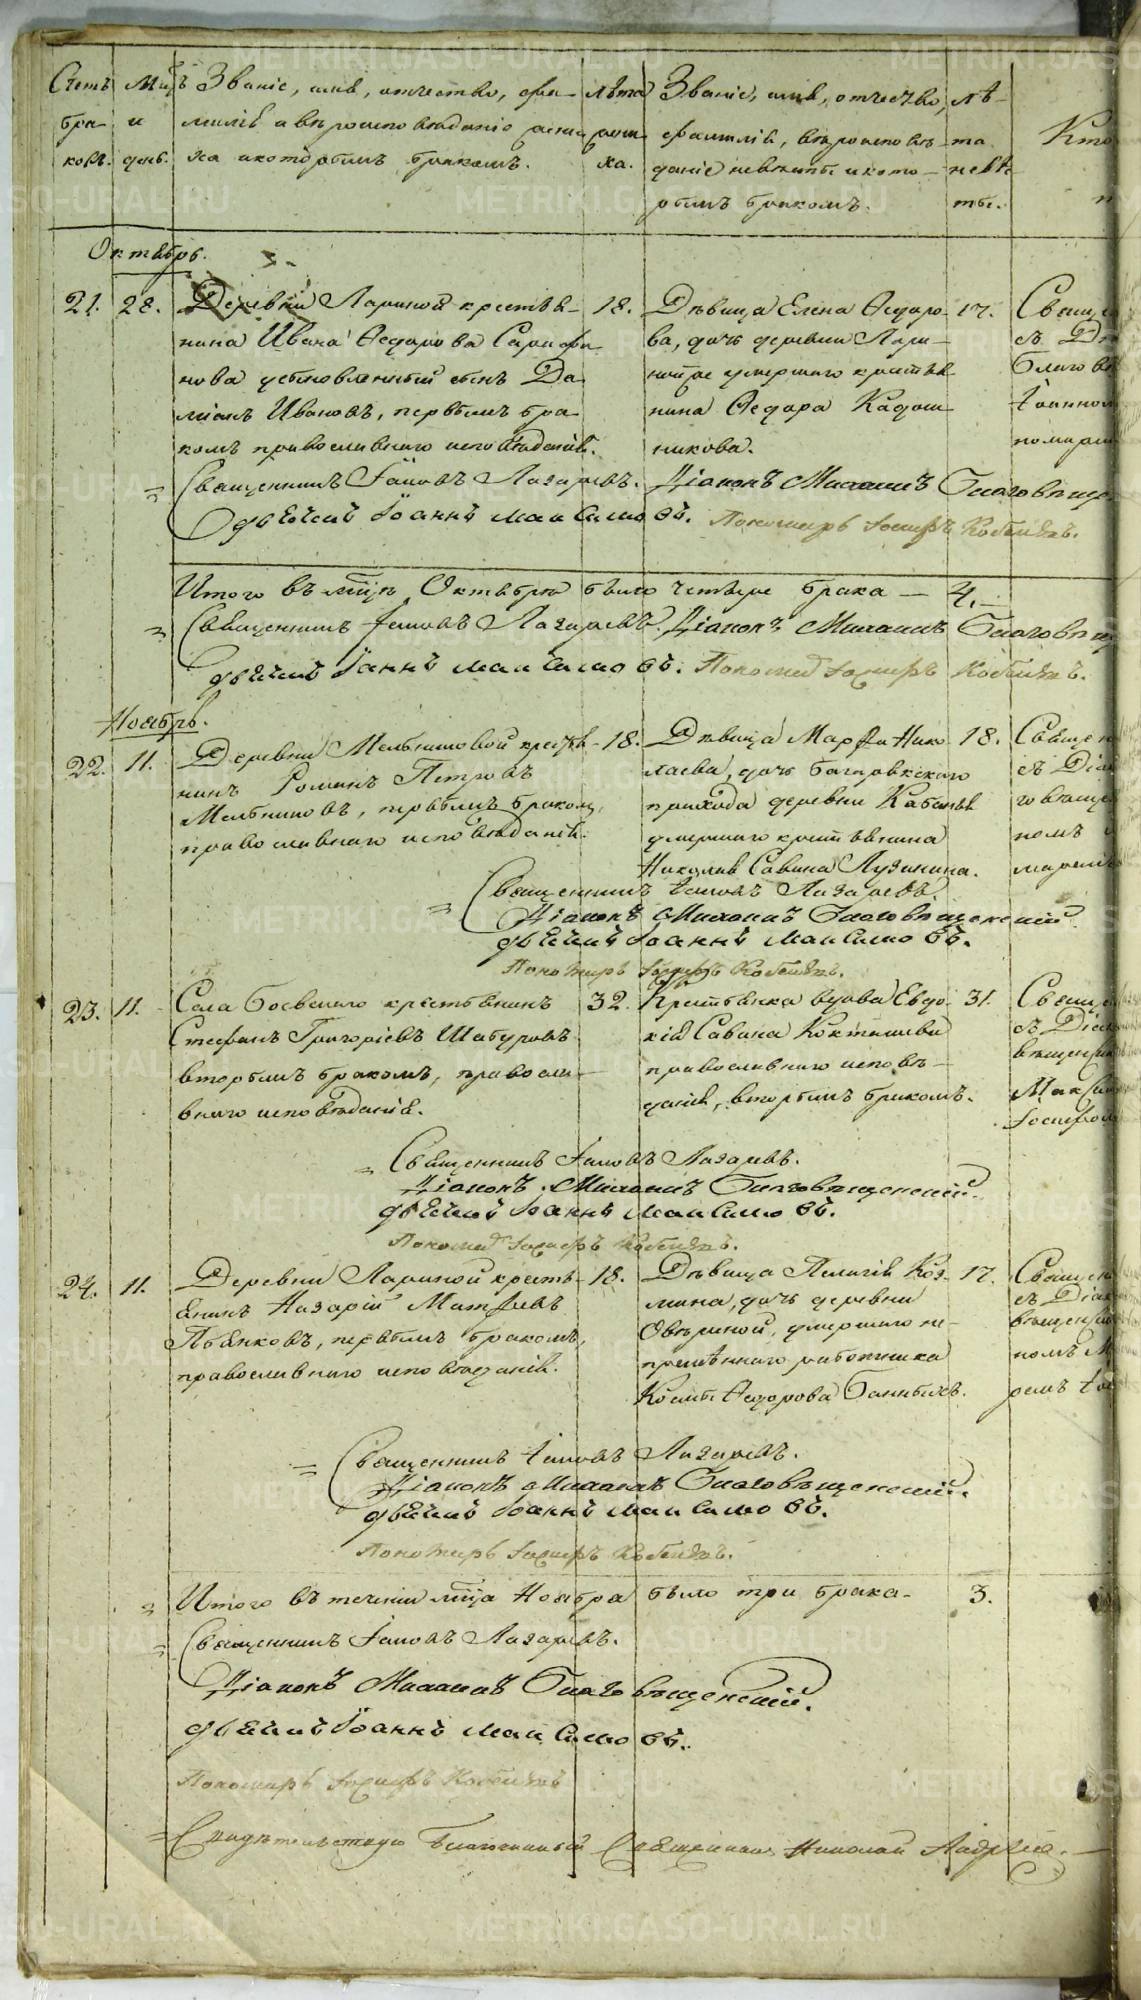 Счетъ браковъ.
Мцъ и день.
Званіе, имя, отчество, фа-
милія и вѣроисповѣданіе жени
ха и которымъ бракомъ.
лѣта
жени
ха.
Званіе, имя, отчество,
фамилія, вѣроисповѣ-
даніе невѣсты и кото-
рымъ бракомъ.
лѣ-
та
невѣс
ты.
Кто
Октябрь.
21. 28.
Деревни Лариной крестья-
нина Ивана Ѳедорова Сарафа-
нова усыновленный сынъ Да-
міанъ Ивановъ, первымъ бра-
комъ православнаго исповѣданія.
18.
Дѣвица Елена Ѳедоро-
ва, дочь деревни Лари-
ной умершаго крестья-
нина Ѳедора Кадош-
никова.
17.
Священ
съ Д
Благовѣ
Іоанном
пономар
Священникъ Іаковъ Лазаревъ. Діаконъ Михаилъ Благовѣще
дьячекъ Іоаннъ Максимовъ. Пономарь Іосифъ Кобяковъ.
Итого въ мцѣ Октябрѣ было четыре брака — 4.
Священникъ Іаковъ Лазаревъ. Діаконъ Михаилъ Благовѣщ
дьячекъ Іоаннъ Максимовъ. Пономарь Іосифъ Кобяковъ.
Ноябрь.
22. 11.
Деревни Мельниковой крестья-
нинъ Романъ Петровъ
Мельниковъ, первымъ бракомъ,
православнаго исповѣданія.
18.
Дѣвица Марѳа Нико
лаева, дочь
прихода деревни
умершаго крестьянина
Николая Савина Лузинина.
18.
Священ
съ Діа
говѣще
номъ
марем
Священникъ Іаковъ Лазаревъ.
Діаконъ Михаилъ Благовѣщенскій
дьячекъ Іоаннъ Максимовъ.
Пономарь Іосифъ Кобяковъ.
23. 11.
Села Боевскаго крестьянинъ
Стефанъ Григоріевъ Шабуровъ
вторымъ бракомъ, правосла-
внаго исповѣданія.
32.
Крестьянка вдова Евдо-
кія Савина Коктышева
православнаго исповѣ-
данія, вторымъ бракомъ.
31.
Свяще
съ Діак
вѣщенск
Макси
Іосифом
Священникъ Іаковъ Лазаревъ.
Діаконъ Михаилъ Благовѣщенскій.
дьячекъ Іоаннъ Максимовъ.
Пономарь Іосифъ Кобяковъ.
24. 11.
Деревни Лариной кресть-
янинъ Назарій Матфѣевъ
Пьянковъ, первымъ бракомъ,
православнаго исповѣданія.
18.
Дѣвица Пелагія Коз-
мина, дочь деревни
умершаго не-
премѣннаго работника
Козмы Ѳедорова
17.
Священ
съ Діак
вѣщенск
номъ М
ремъ Іо
Священникъ Іаковъ Лазаревъ.
Діаконъ Михаилъ Благовѣщенскій.
дьячекъ Іоаннъ Максимовъ.
Пономарь Іосифъ Кобяковъ.
Итого въ теченіи мца Ноября было три брака. 3.
Священникъ Іаковъ Лазаревъ.
Діаконъ Михаилъ Благовѣщенскій.
дьячекъ Іоаннъ Максимовъ.
Пономарь Іосифъ Кобяковъ
Свидѣтельствую Благочинный Священникъ Николай
METRIKI.GASO-URAL.RU